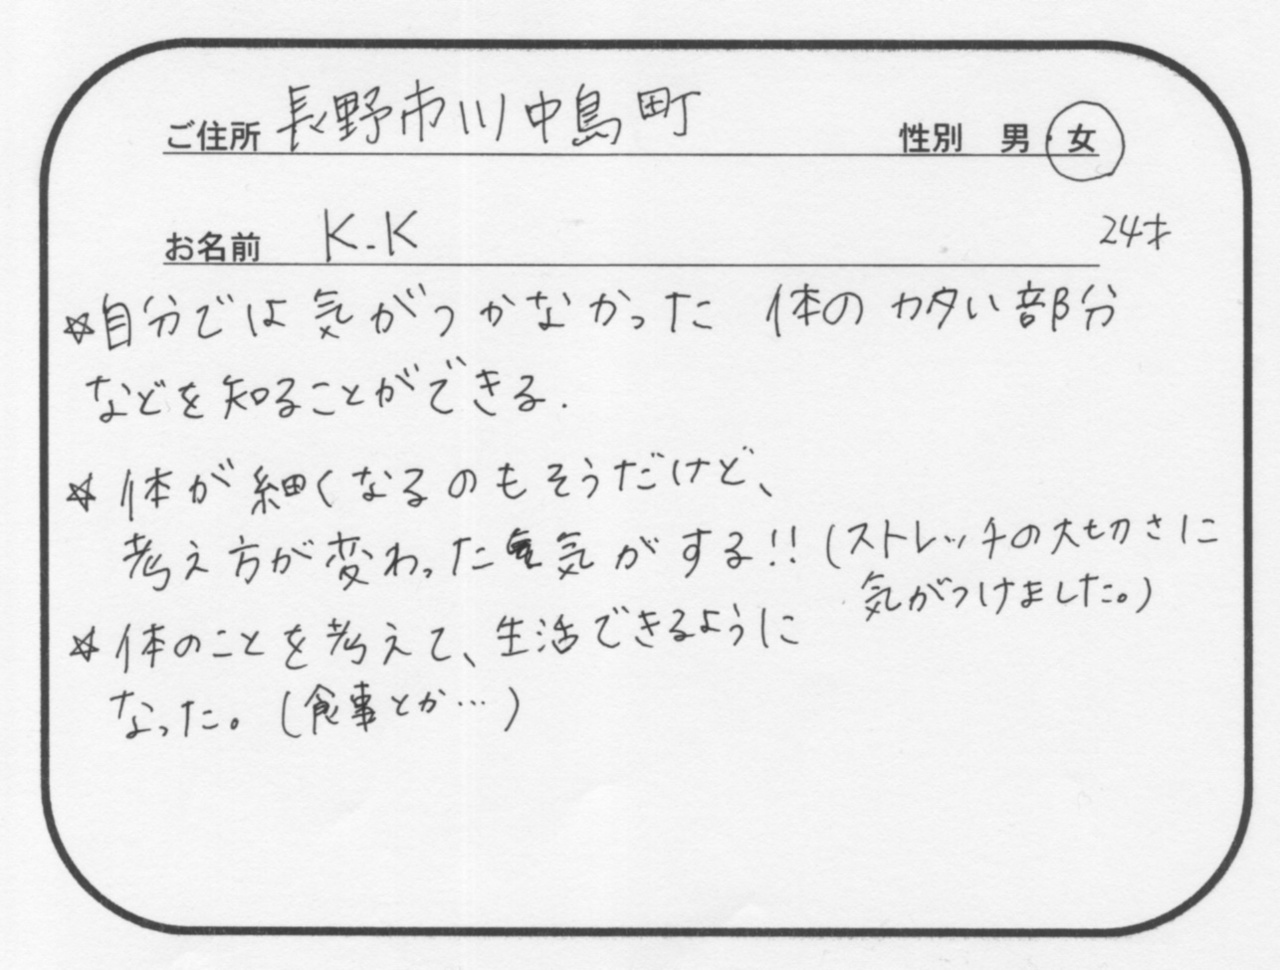 ご住所 長野市川中島町 性別 男・女
お名前 K.K 24才
☆自分では気がつかなかった 体のカタい部分
などを知ることができる.
☆ 体が細くなるのもそうだけど、
考え方が変わった気がする!! (ストレッチの大切さに
気がつけました。)
☆ 体のことを考えて、生活できるように
なった。(食事とか…)